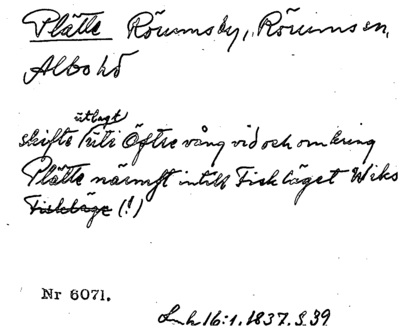 Plätte Rörums by, Rörums sn,
Albo hd
utlagt
skifte uti Öftre vång vid och omkring
Plätte närmst intill Fiskläget Wiks
Fiskläge (!)
Nr 6071.
Lmk 16:1. 1837. S 39